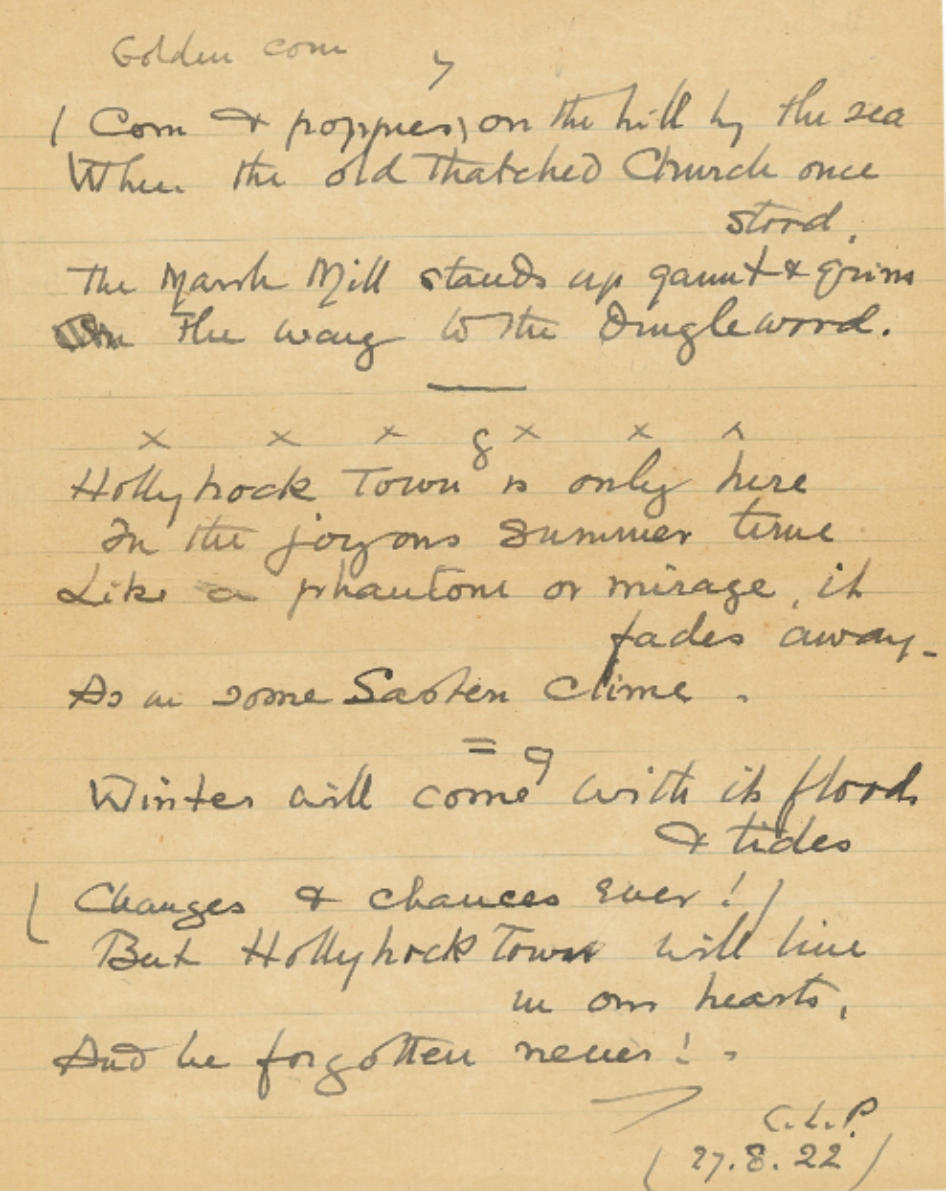 Golden corn
( Corn & poppies, on the hill by the sea
Where the old thatched Church once
stood.
The Marsh Mill stands up gaunt & grim
On the way to the Dinglewood.
x x x 8 x x x
Hollyhock Town is only here
In the joyous summer time
Like a phantom or mirage, it
fades away -
As in some Eastern clime .
= 9
Winter will come with its floods
& tides
( Changes & chances ever! )
But Hollyhock Town will live
in our hearts,
And be forgotten never! -
C.L.P.
(27.8.22)